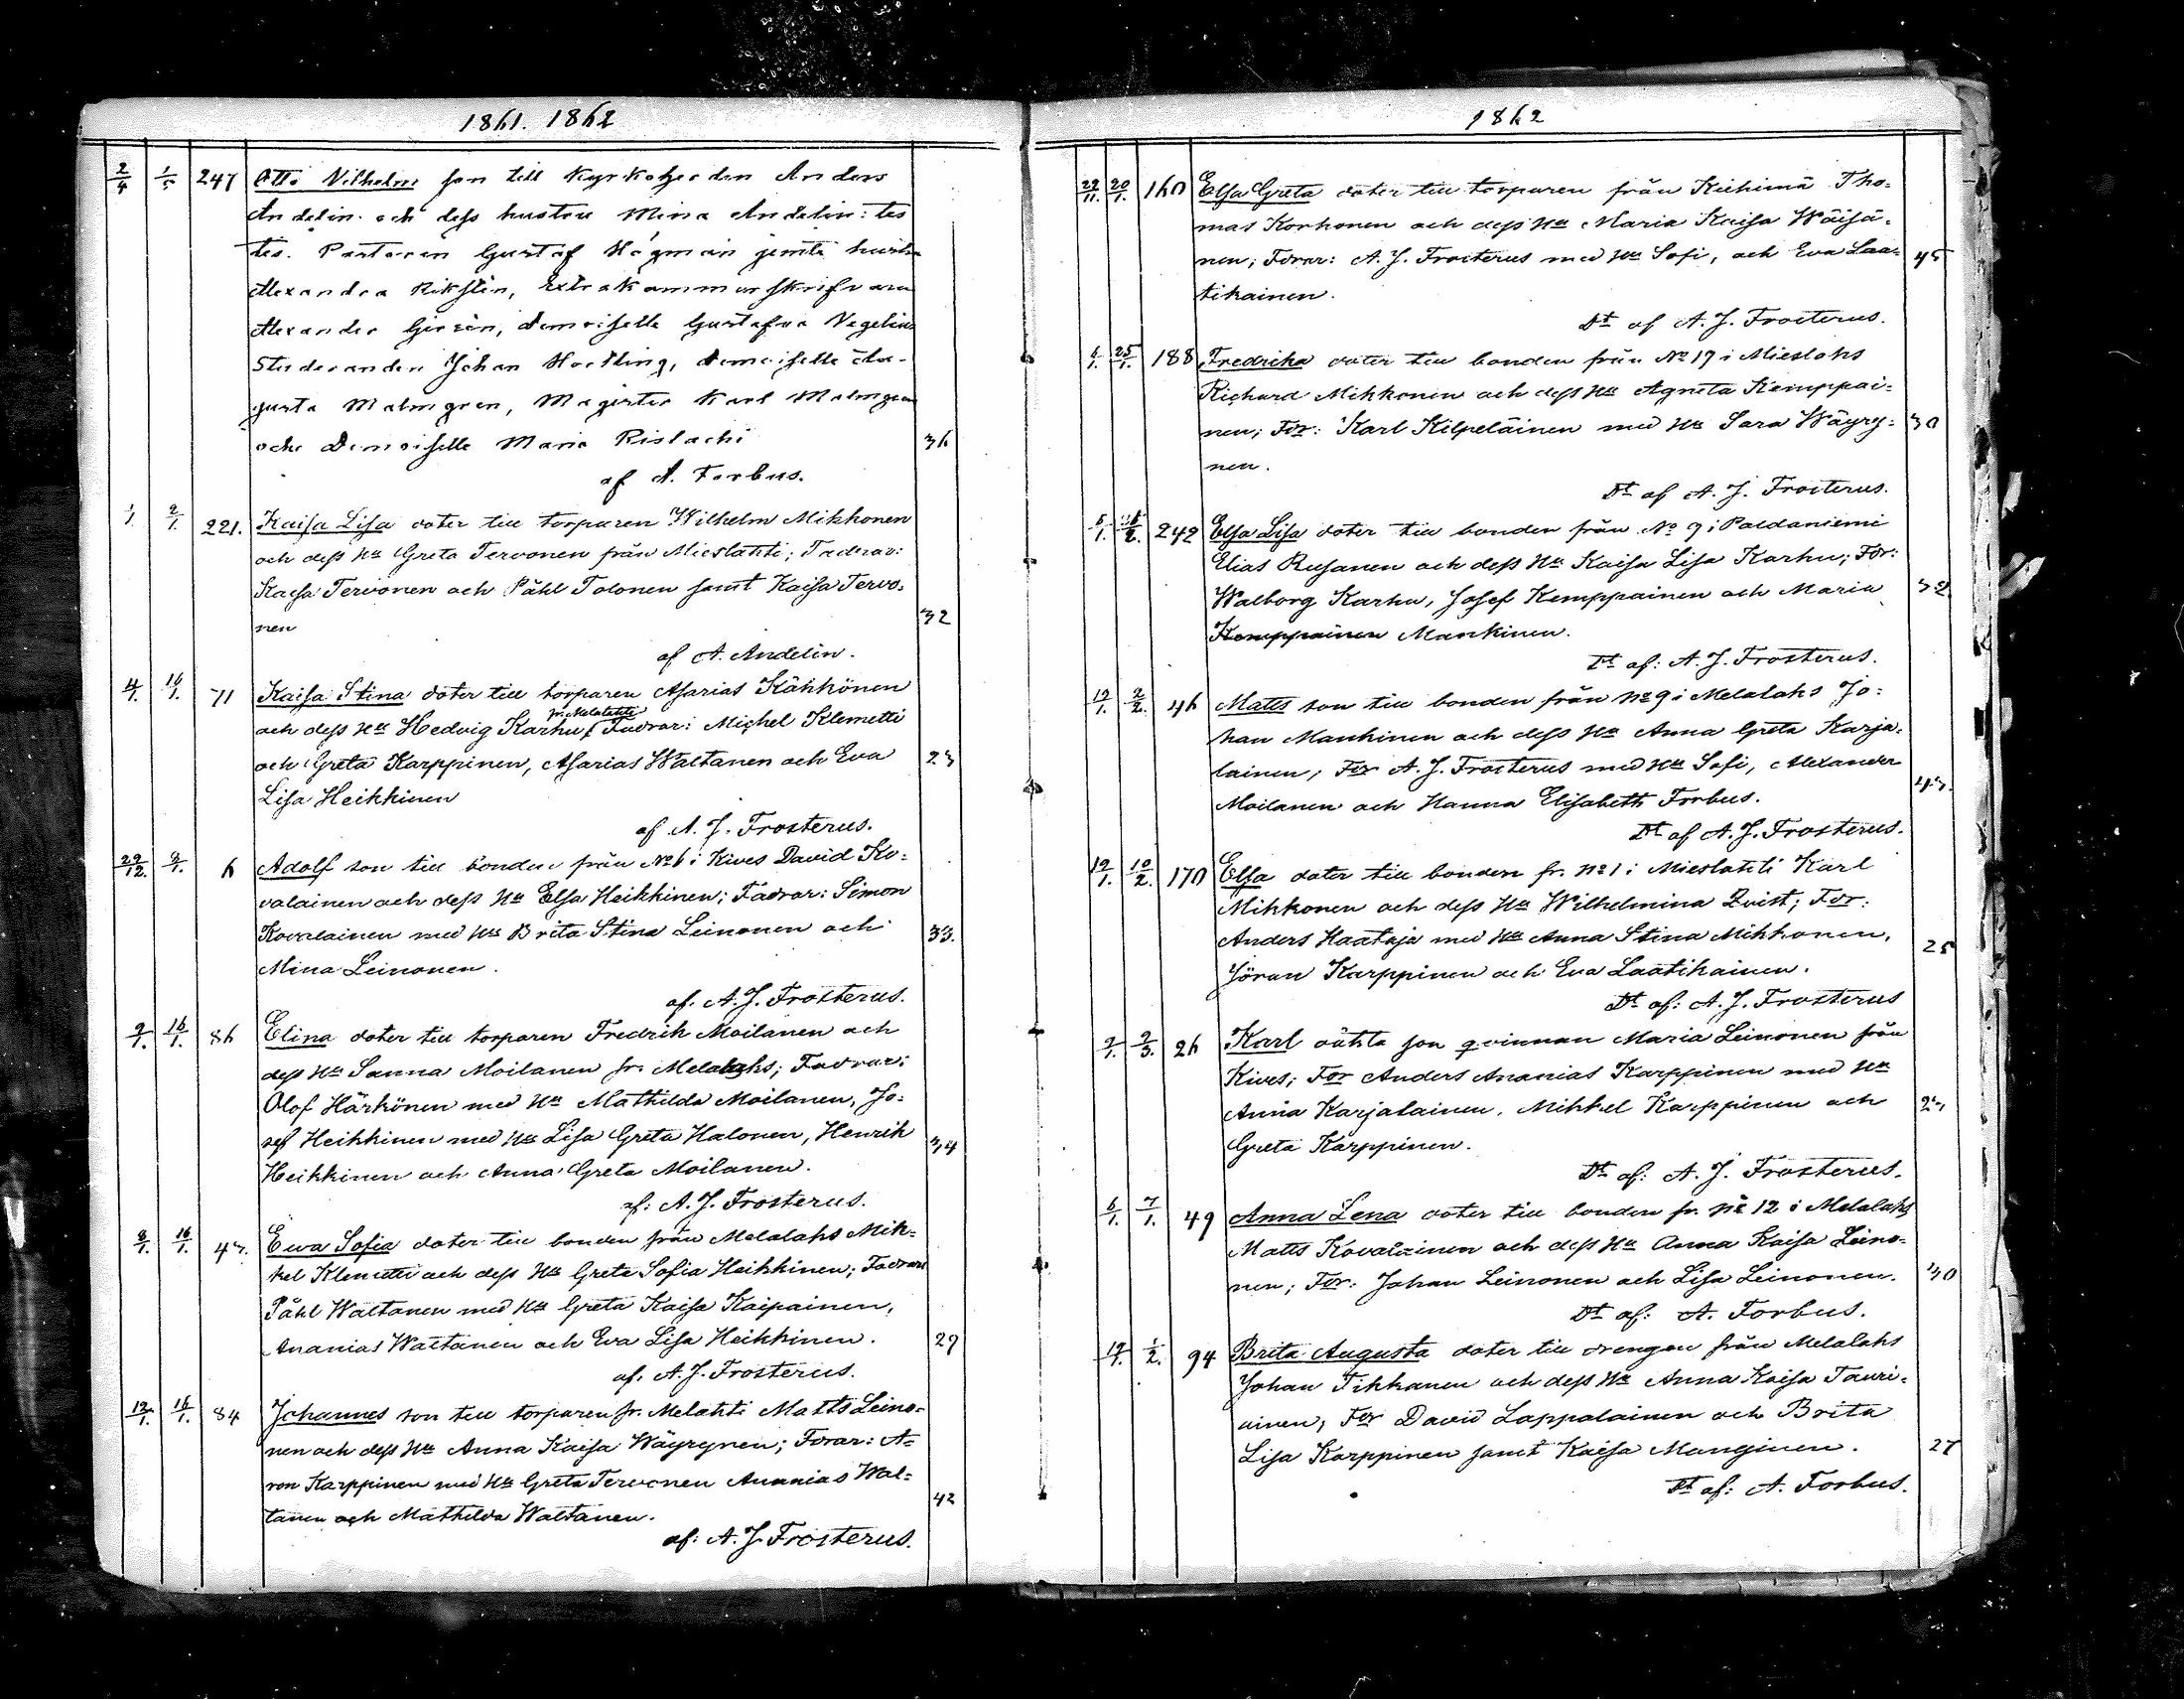 1861. 1862
2/4 1/5 247 Otto Vilhelm son till Kyrkoherden Anders
Andelin och dess hustru Mina Andelin: tes
tes. Pastoren Gustaf Högman jemte hustru
Alexandra Rikstén, Extrakammarskrifvaren
Alexander Girsén, Demoiselle Gustafva Vegelius
Studeranden Johan Hoefling, demoiselle Au-
gusta Malmgren, Magister Karl Malmgren
och Demoiselle Maria Rislachi 36
af A. Forbus.
1/1 2/1. 221. Kaisa Lisa doter till torparen Wilhelm Mikkonen
och dess Hu Greta Tervonen från Mieslahti; Fadrar:
Kaisa Tervonen och Påhl Tolonen samt Kaisa Tervo-
nen 32
af A. Andelin.
4/1. 16/1. 71 Kaisa Stina doter till torparen Asarias Kähkönen
och dess Hu Hedvig Karhu fr. Melalahti; Fadrar: Michel Klemetti
och Greta Karppinen, Asarias Waltanen och Eva 23
Lisa Heikkinen
af A. J. Frosterus.
29/12. 9/1. 6 Adolf son till bonden från No 6 i Kives David Ko-
valainen och dess Hu Elsa Heikkinen; Fadrar: Simon
Kovalainen med Hu Brita Stina Leinonen och 33.
Mina Leinonen.
af. A. J. Frosterus.
9/1. 16/1. 86 Elina doter till torparen Fredrik Moilanen och
dess Hu Sanna Moilanen fr. Melalahs; Fadrar:
Olof Härkönen med Hu Mathilda Moilanen, Jo-
sef Heikkinen med Hu Lisa Greta Halonen, Henrik 34
Heikkinen och Anna Greta Moilanen.
af: A. J. Frosterus.
8/1. 16/1. 43. Ewa Sofia doter till bonden från Melalahs Mik-
kel Klemetti och dess Hu Greta Sofia Heikkinen; Fadrar
Påhl Waltanen med Hu Greta Kaisa Kaipainen,
Ananias Waltanen och Eva Lisa Heikkinen. 29
af. A. J. Frosterus.
12/1. 16/1. 84 Johannes son till torparen fr. Melahti Matts Leino-
nen och dess Hu Anna Kaisa Wäyrynen; Fdrar: A-
ron Karppinen med Hu Greta Tervonen Ananias Wal-
tanen och Mathilda Waltanen. 42
af: A. J. Frosterus.
1862
29/11. 20/1. 160 Elsa Greta doter till torparen från Kiehimä Tho-
mas Korhonen och dess Hu Maria Kaisa Wäisä-
nen; Fdrar: A. J. Frosterus med Hu Sofi, och Eva Laa- 45
tikainen.
Dt af A. J. Frosterus.
6/1. 25/1. 188 Fredrika doter till bonden från No 17 i Mieslahs
Richard Mikkonen och dess Hu Agneta Kemppai-
nen; Fdr: Karl Kilpeläinen med Hu Sara Wäyry- 30
nen.
Dt af A. J. Frosterus.
5/1. 242 Elsa Lisa doter till bonden från No 9 i Paldaniemi
Elias Rusanen och dess Hu Kaisa Lisa Karhu; Fdr:
Walborg Karhu, Josef Kemppainen och Maria 32
Kemppainen Mankinen.
Dt af: A. J. Frosterus.
19/1. 2/2. 46 Matts son till bonden från No 9 i Melalahs Jo-
han Mankinen och dess Hu Anna Greta Karja-
lainen; Fdr A. J. Frosterus med Hu Sofi, Alexander 43.
Moilanen och Hanna Elisabeth Forbus.
Dt af A. J. Frosterus.
19/1. 10/2. 170 Elsa doter till bonden fr. No 1 i Mieslahti Karl
Mikkonen och dess Hu Wilhelmina Qvist; Fdr:
Anders Haataja med Hu Anna Stina Mikkonen, 25
Jöran Karppinen och Eva Laatikainen.
Dt af: A. J. Frosterus
2/1. 9/3. 26 Karl oähta son qvinnan Maria Leinonen från
Kives; Fdr Anders Ananias Karppinen med Hu
Anna Karjalainen, Mikkel Karppinen och 23
Greta Karppinen.
Dt af: A. J. Frosterus.
6/1. 7/1. 49 Anna Lena doter till bonden fr. No 12 i Melalahs
Matts Kovalainen och dess Hu Anna Kaisa Leino-
nen; Fdr: Johan Leinonen och Lisa Leinonen. 30
Dt af: A. Forbus.
19/1. 1/2. 94 Brita Augusta doter till drengen från Melalahs
Johan Tikkanen och dess Hu Anna Kaisa Tauri-
ainen; Fdr David Lappalainen och Brita
Lisa Karppinen samt Kaisa Manginen. 27
Dt af: A. Forbus.